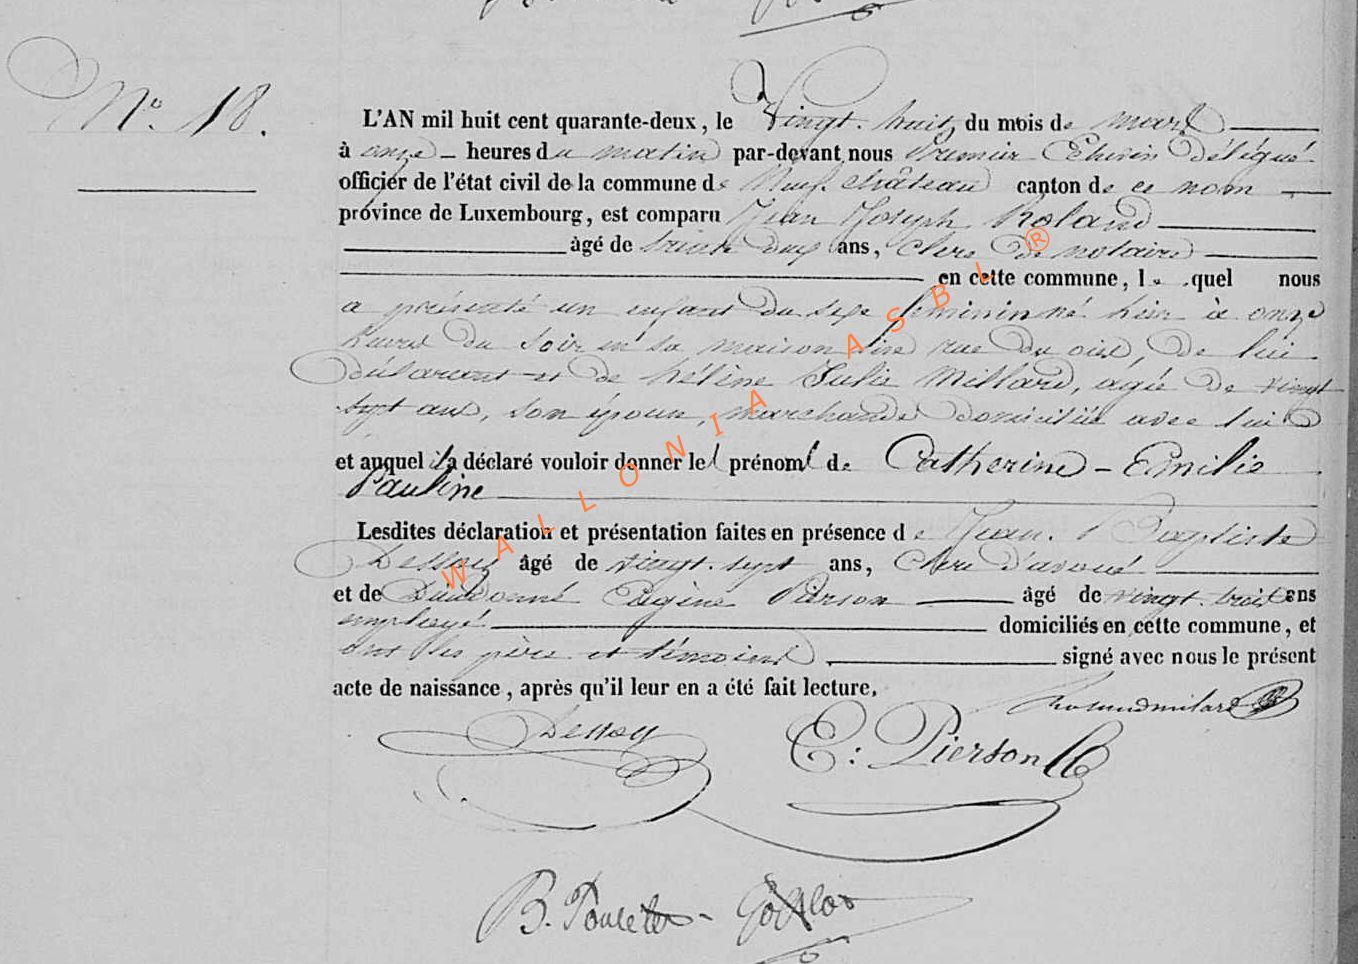 N.º 18.
L'AN mil huit cent quarante-deux, le Vingt-huit du mois de mars
à onze heures du matin par-devant nous Premier Echevin délégué
officier de l'état civil de la commune de Neufchâteau canton de ce nom
province de Luxembourg, est comparu Jean Joseph Roland
âgé de trente deux ans, clerc de notaire
en cette commune, le quel nous
a présenté un enfant du sexe féminin né hier à onze
heures du soir en sa maison sise rue du, de lui
déclarant et de Hélène Julie Millard, agée de vingt
sept ans, son épouse, marchande domiciliée avec lui
et auquel il a déclaré vouloir donner les prénoms de Catherine - Emilie
Pauline
Lesdites déclaration et présentation faites en présence de Jean Baptiste
Dessoy âgé de vingt-sept ans, clerc d'avoué
et de Dieudonné Eugène Pierson âgé de vingt-trois ans
employé domiciliés en cette commune, et
ont les père et témoins signé avec nous le présent
acte de naissance, après qu'il leur en a été fait lecture.
Dessoy
E: Pierson
WALLONIA ASBL ®